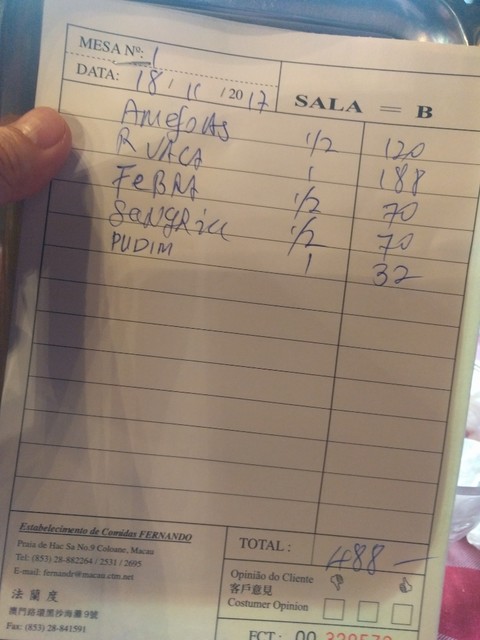 MESA Nº: 1
DATA: 18 / 11 / 20 17
SALA = B
AMEIJOAS 1/2 120
R VACA 1 188
FEBRA 1/2 70
SANGRIA 1/2 70
PUDIM 1 32
Estabelecimento de Comidas FERNANDO
Praia de Hac Sa No.9 Coloane, Macau
Tel: (853) 28-882264 / 2531 / 2695
E-mail: fernandr@macau.ctm.net
法蘭度
澳門路環黑沙海灘9號
Fax: (853) 28-841591
TOTAL: 488 —
Opinião do Cliente
客戶意見
Costumer Opinion
FCT: 00